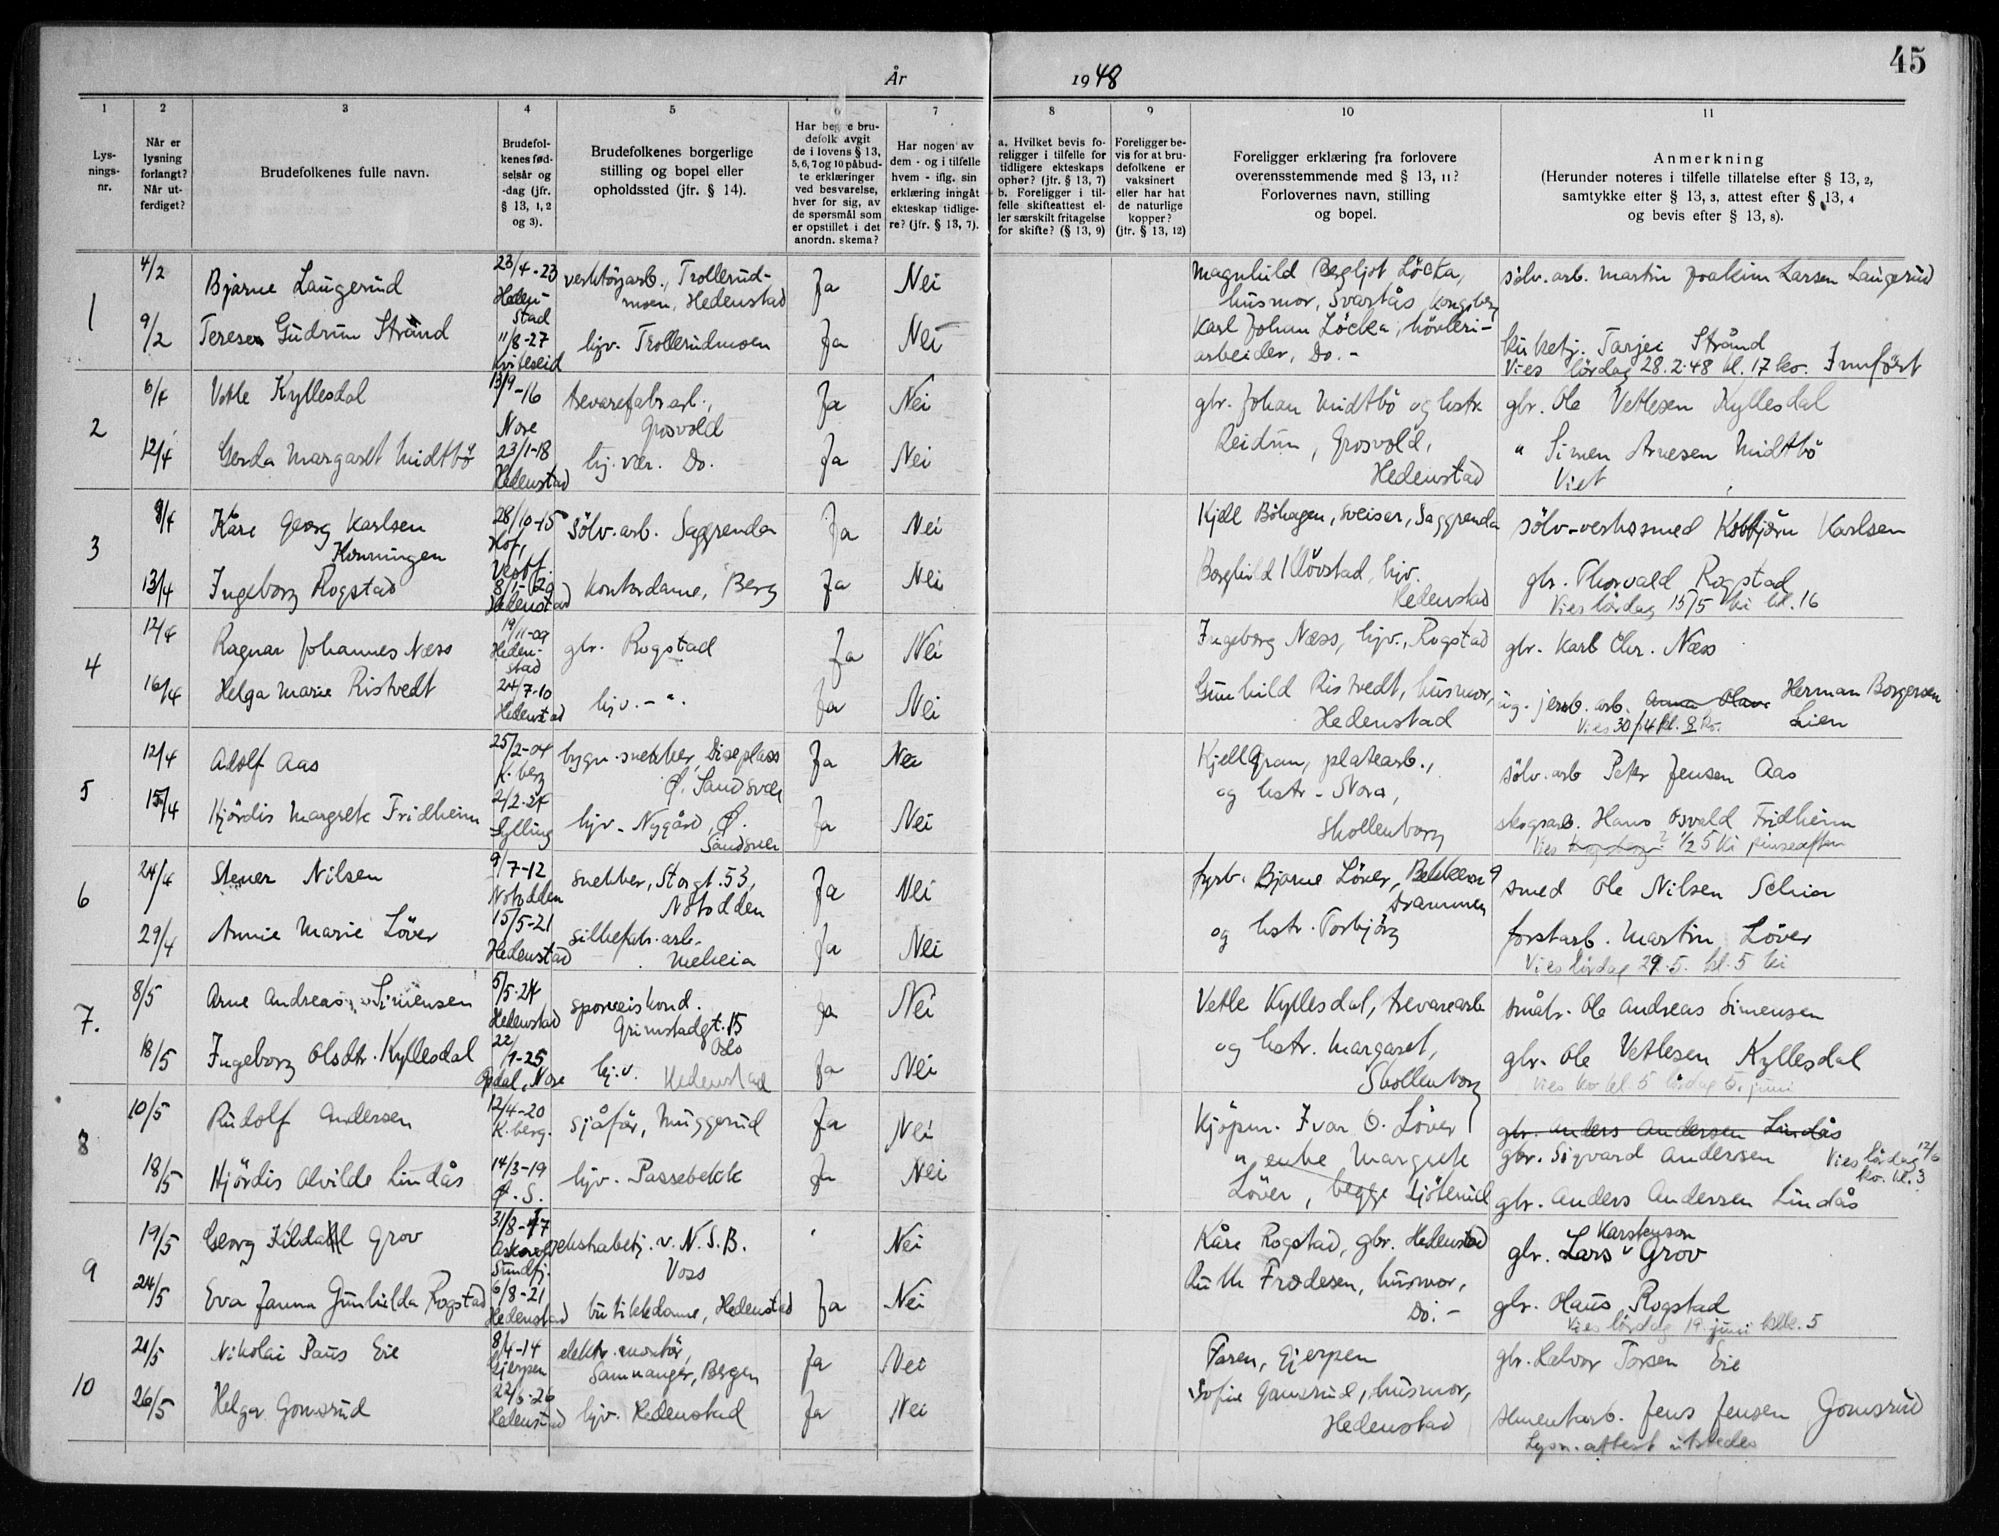 45
År 1948
1 2 3 4 5 6 7 8 9 10 11
Lys-
nings-
nr.
Når er
lysning
forlangt?
Når ut-
ferdiget?
Brudefolkenes fulle navn.
Brudefol-
kenes fød-
selsår og
-dag (jfr.
§ 13, 1, 2
og 3).
Brudefolkenes borgerlige
stilling og bopel eller
opholdssted (jfr. § 14).
Har begge bru-
defolk avgit
de i lovens § 13,
5, 6, 7 og 10 påbud-
te erklæringer
ved besvarelse,
hver for sig, av
de spørsmål som
er opstillet i det
anordn. skema?
Har nogen av
dem - og i tilfelle
hvem - iflg. sin
erklæring inngått
ekteskap tidlige-
re? (jfr. § 13, 7).
a. Hvilket bevis fo-
religger i tilfelle for
tidligere ekteskaps
ophør? (jfr. § 13, 7)
b. Foreligger i til-
felle skifteattest el-
ler særskilt fritagelse
for skifte? (§ 13, 9)
Foreligger be-
vis for at bru-
defolkene er
vaksinert
eller har hat
de naturlige
kopper?
(jfr. § 13, 12)
Foreligger erklæring fra forlovere
overensstemmende med § 13, 11?
Forlovernes navn, stilling
og bopel.
Anmerkning
(Herunder noteres i tilfelle tillatelse efter § 13, 2,
samtykke efter § 13, 3, attest efter § 13, 4
og bevis efter § 13, 8).
1
4/2 Bjarne Laugerud 23/4-23 verktöyarb., Trollerud- Ja Nei Magnhild Bergljot Löcka, sölv. arb. Martin Joakim Larsen Laugerud
Heden-
stad moen, Hedenstad husmor, Svartås, Kongsberg
9/2 Terese Gudrun Strånd 11/8-27 hjv. Trollerudmoen Ja Nei Karl Johan Löcka, hövleri- kirketj. Tarjei Strånd
Kviteseid arbeider, Do. - Vies lördag 28.2.48 kl. 17 ko. Innfört
2
6/4 Vetle Kyllesdal 13/9-16 trevarefabr.arb., Ja Nei gbr. Johan Midtbö og hstr. gbr. Ole Vetlesen Kyllesdal
Nore Grosvold Reidun, Grosvold,
12/4 Gerda Margaret Midtbö 23/1-18 hj. vær. Do. Ja Nei Hedenstad " Simen Arnesen Midtbö
Hedenstad Viet
3
9/4 Kåre Georg Karlsen 28/10-15 Sölv. arb. Saggrenda Ja Nei Kjell Böhagen, sveiser, Saggrenda sölv-verkssmed Karlsen
Konningen Hof,
Vestf.
13/4 Ingeborg Rogstad 8/1-29 kontordame, Berg Ja Nei Borghild Klövstad, hjv. gbr. Thorvald Rogstad
Hedenstad Hedenstad Vies lördag 15/5 ki kl. 16
4
12/4 Ragnar Johannes Næss 19/11-09 gbr. Rogstad Ja Nei Ingeborg Næss, hjv., Rogstad gbr. Karl Chr. Næss
Heden-
stad
16/4 Helga Marie Ristvedt 24/7-10 hjv. - " - Ja Nei Gunhild Ristvedt, husmor, ug. jernb. arb. Herman Borgersen
Hedenstad Hedenstad Vies 30/4 kl. 8 ko. Lien
5
12/4 Adolf Aas 25/2-04 bygn. snekker, Diseplass Ja Nei Kjell Gran, platearb., sölv. arb Peter Jensen Aas
K.berg Ø. Sandsvær og hstr. Nora,
15/4 Hjördis Margrete Fridheim 2/2-24 hjv. Nygård, Ø. Ja Nei Skollenborg skogsarb. Hans Osvald Fridheim
Lylling Sandsvær Vies 1/2 5 ki pinseaften
6
24/4 Stener Nilsen 9/7-12 snekker, Storgt. 53, Ja Nei fyrb. Bjarne Löver, Bekkevn 9 smed Ole Nilsen
Notodden Notodden Drammen
29/4 Annie Marie Löver 15/5-21 silkefabr. arb. Ja Nei og hstr. Torbjörg forstarb. Martin Löver
Hedenstad Meheia Vies lördag 29.5. kl. 5 ki
7.
8/5 Arne Andreas Simensen 5/5-24 sporveiskond. Ja Nei Vetle Kyllesdal, trevarearb småbr. Ole Andreas Simensen
Hedenstad Grimstadgt. 15
Oslo og hstr. Margaret,
18/5 Ingeborg Olsdtr. Kyllesdal 22/1-25 hj.v. Hedenstad Ja Nei Skollenborg gbr. Ole Vetlesen Kyllesdal
Opdal, Nore Vies ko kl. 5 lördag 5. juni
8
10/5 Rudolf Andersen 12/4-20 sjåför, Muggerud Ja Nei Kjöpm. Ivar O. Löver gbr. Anders Andersen Lindås
K.berg. " enke Margrete gbr. Sigvard Andersen Vies lördag 12/6
ko. kl. 3
18/5 Hjördis Alvilde Lindås 14/3-19 hjv. Passebekk Ja Nei Löver, begge Ljöterud gbr. Anders Andersen Lindås
Ø. S.
9
19/5 Georg Kildal Grov 31/8-17 v. N.S.B. Nei Kåre Rogstad, gbr. Hedenstad gbr. Lars Karstenson Grov
Askvoll
Sundfj. Voss
24/5 Eva Janna Gunhilda Rogstad 6/8-21 butikkdame, Hedenstad Ja Nei Ruth Frodesen, husmor, gbr. Hans Rogstad
Hedenstad Do. - Vies lördag 19. juni klk. 5
10
21/5 Nikolai Paus Eie 8/4-14 elektr. montör, Ja Nei Faren, Gjerpen gbr. Halvor Torsen Eie
Gjerpen Samnanger, Bergen
26/5 Helga Gomsrud 22/3-20 hjv. Hedenstad Ja Nei Sofie Gomsrud, husmor, Jens Jensen Gomsrud
Hedenstad Hedenstad Lysn. attest utstedes